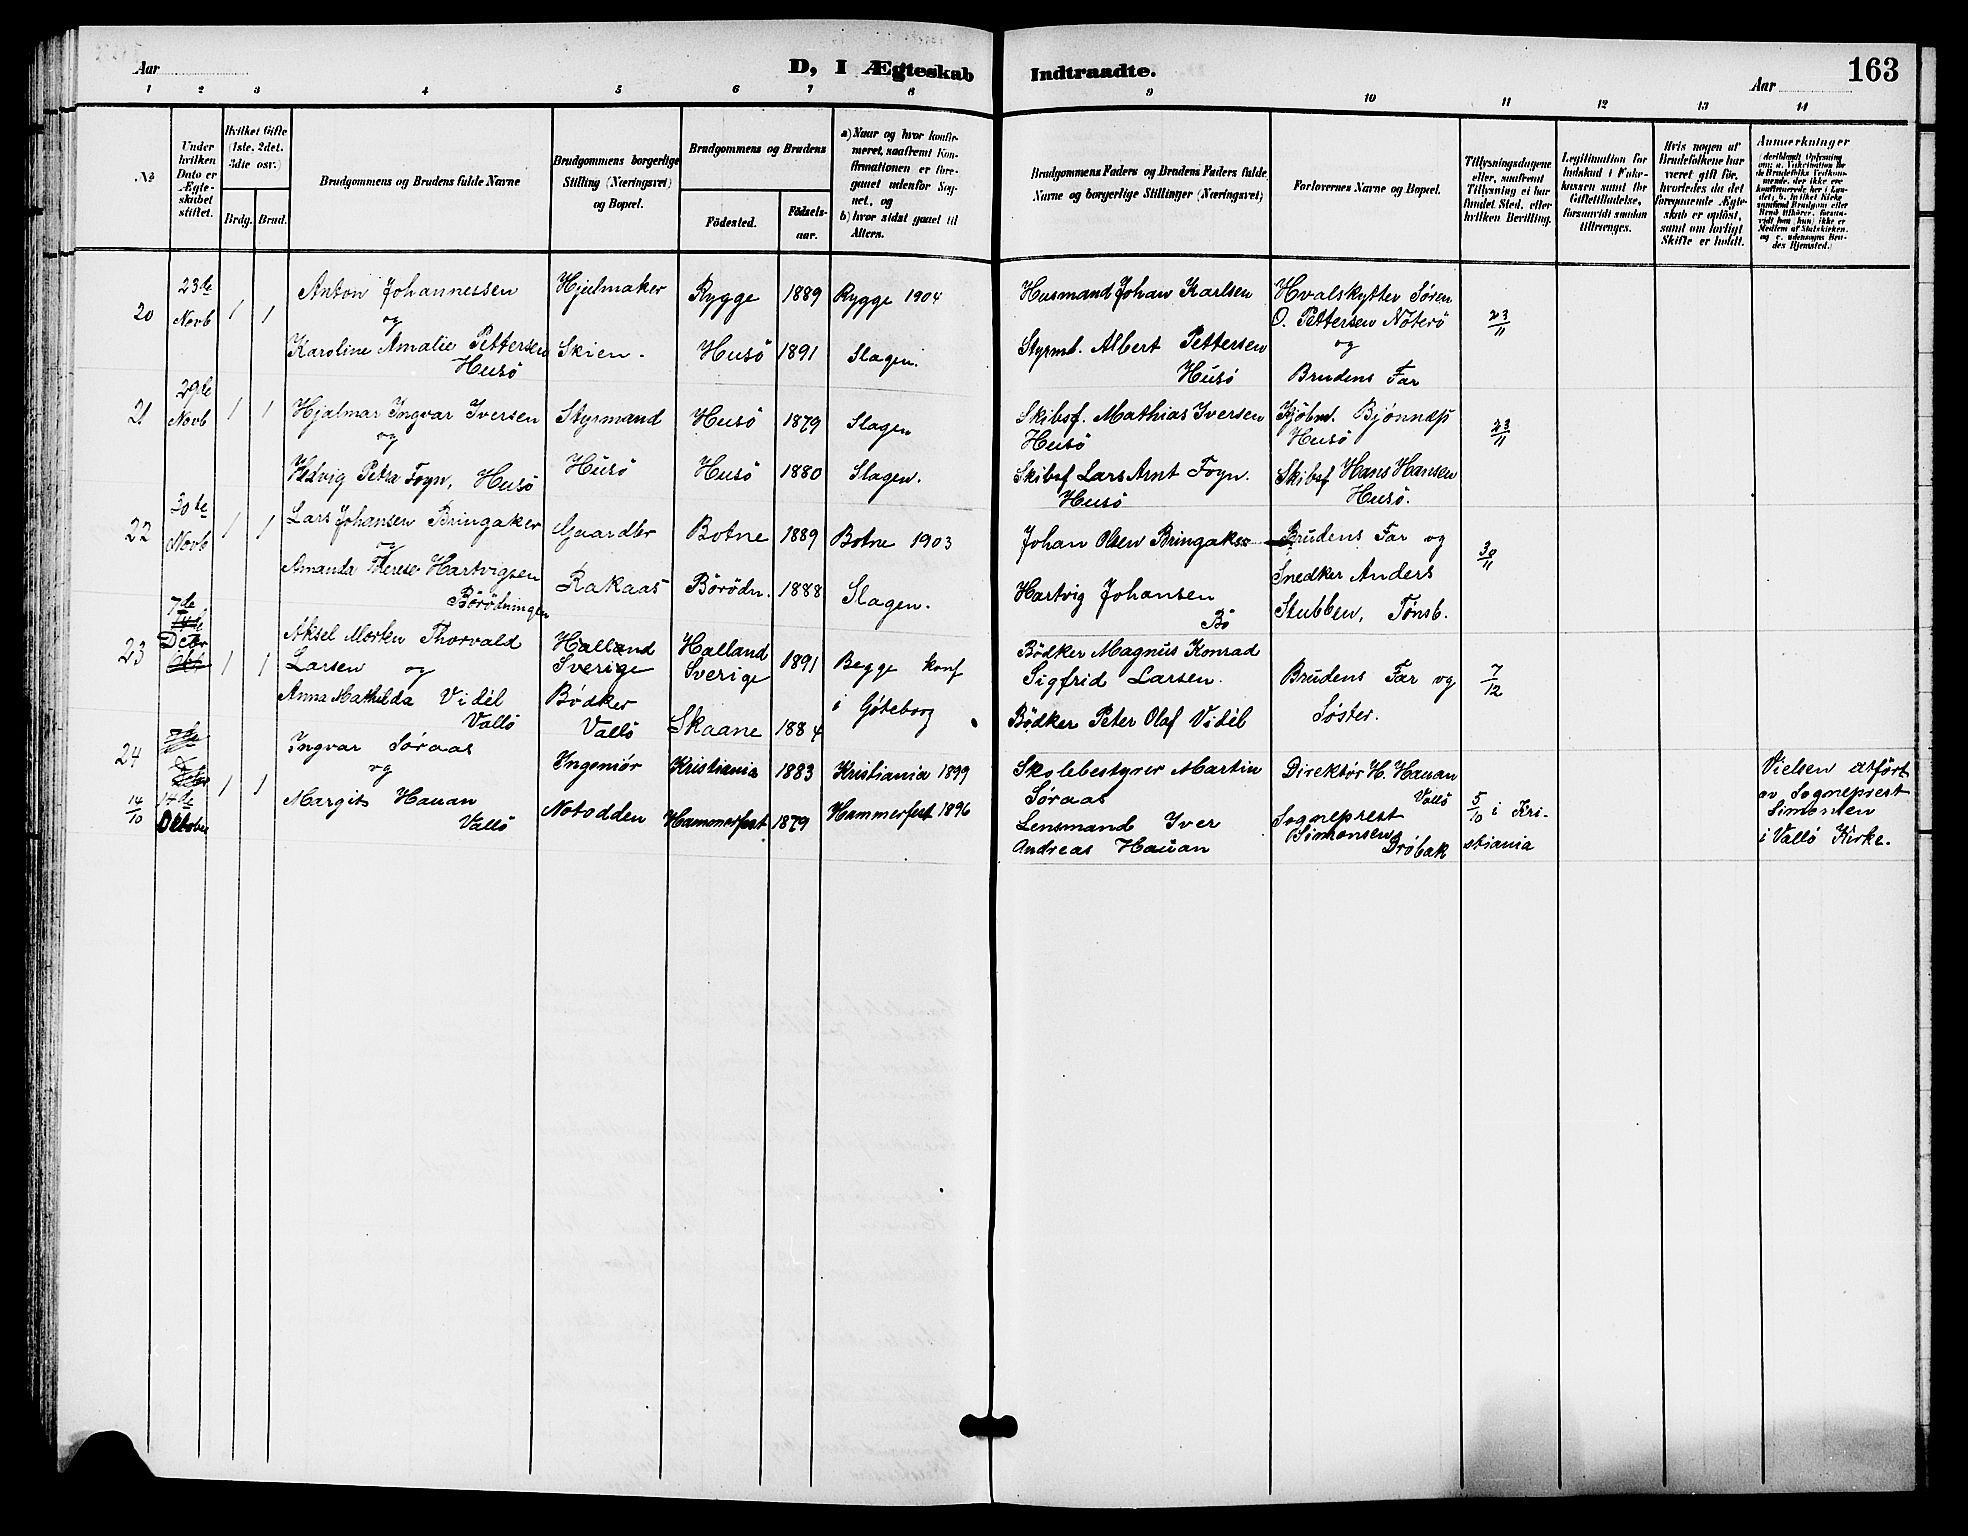 Aar
D, I Ægteskab
Indtraadte.
Aar
163
1 2 3 4 5 6 7 8 9 10 11 12 13 14
No
Under
hvilken
Dato er
Ægte-
skabet
stiftet.
Hvilket Gifte
(1ste, 2det,
3die osv.)
Brdg. Brud.
Brudgommens og Brudens fulde Navne
Brudgommens borgerlige
Stilling (Næringsvei)
og Bopæl.
Brudgommens og Brudens
Födested.
Födsels-
aar.
a) Naar og hvor konfir-
meret, saafremt Kon-
firmationen er fore-
gaaet udenfor Sog-
net, og
b) hvor sidst gaaet til
Alters.
Brudgommens Faders og Brudens Faders fulde
Navne og borgerlige Stillinger (Næringsvei)
Forlovernes Navne og Bopæl.
Tillysningsdagene
eller, saafremt
Tillysning ei har
fundet Sted, efter
hvilken Bevilling.
Legitimation for
Indskud i Enke-
kassen samt for
Giftetilladelse,
forsaavidt saadan
tiltrænges.
Hvis nogen af
Brudefolkene har
været gift för,
hvorledes da det
foregaaende Ægte-
skab er oplöst,
samt om lovligt
Skifte er holdt.
Anmærkninger
(deriblandt Oplysning
om: a. Vakcination for
de Brudefolks Vedkom-
mende, der ikke ere
konfirmerede her i Lan-
det; b. hvilket Kirke-
samfund Brudgom eller
Brud tilhører, forsaa-
vidt han (hun) ikke er
Medlem af Statskirken,
og c. udensogns Bru-
des Hjemsted.)
20
23de
Novb
1 1
Anton Johannessen
og
Karoline Amalie Pettersen
Husö
Hjulmaker
Skien.
Rygge 1889 Rygge 1904
Husö 1891 Slagen.
Husmand Johan Karlsen
Styrmd. Albert Pettersen
Husö
Hvalskytter Sören
O. Pettersen Nöterö
og
Brudens Far
23/11
21
29de
Novb
1 1
Hjalmar Ingvar Iversen
og
Hedvig Petra Foyn, Husö
Styrmand
Husö
Husö 1879 Slagen
Husö 1880 Slagen.
Skibsf. Mathias Iversen
Husö
Skibsf Lars Arnt Foyn.
Husö
Kjöbm. Bjönness
Husö
Skibsf Hans Hansen
Husö.
23/11
22
30te
Novb
1 1
Lars Johansen Bringaker
og
Amanda Therese Hartvigsen
Börödningen
Gaardbr
Rakaas
Botne 1889 Botne 1903
Börödn. 1888 Slagen.
Johan Olsen Bringaker
Hartvig Johansen
Bö
Brudens Far og
Snedker Anders
Stubben, Tönsb.
30/11
23
7de
Decbr
1 1
Aksel Morten Thorvald
Larsen og
Anna Mathilda Vidél
Vallö
Halland
Sverige
Bödker
Vallö
Halland
Sverige
1891
Skaane 1884
Begge konf
i Göteborg
Bödker Magnus Konrad
Sigfrid Larsen.
Bödker Peter Olaf Vidél
Brudens Far og
Söster.
7/12
24
14/10
14de
Oktober
1 1
Ingvar Söraas
og
Margit Hauan
Vallö
Ingeniör
Notodden
Kristiania 1883 Kristiania 1899
Hammerfest 1879 Hammerfest 1896
Skolebestyrer Martin
Söraas
Lensmand Iver
Andreas Hauan
Direktör H. Hauan
Vallö
Sogneprest
Simonsen
Dröbak
5/10 i Kri-
stiania
Vielsen utfört
av Sogneprest
Simonsen
i Vallö Kirke.